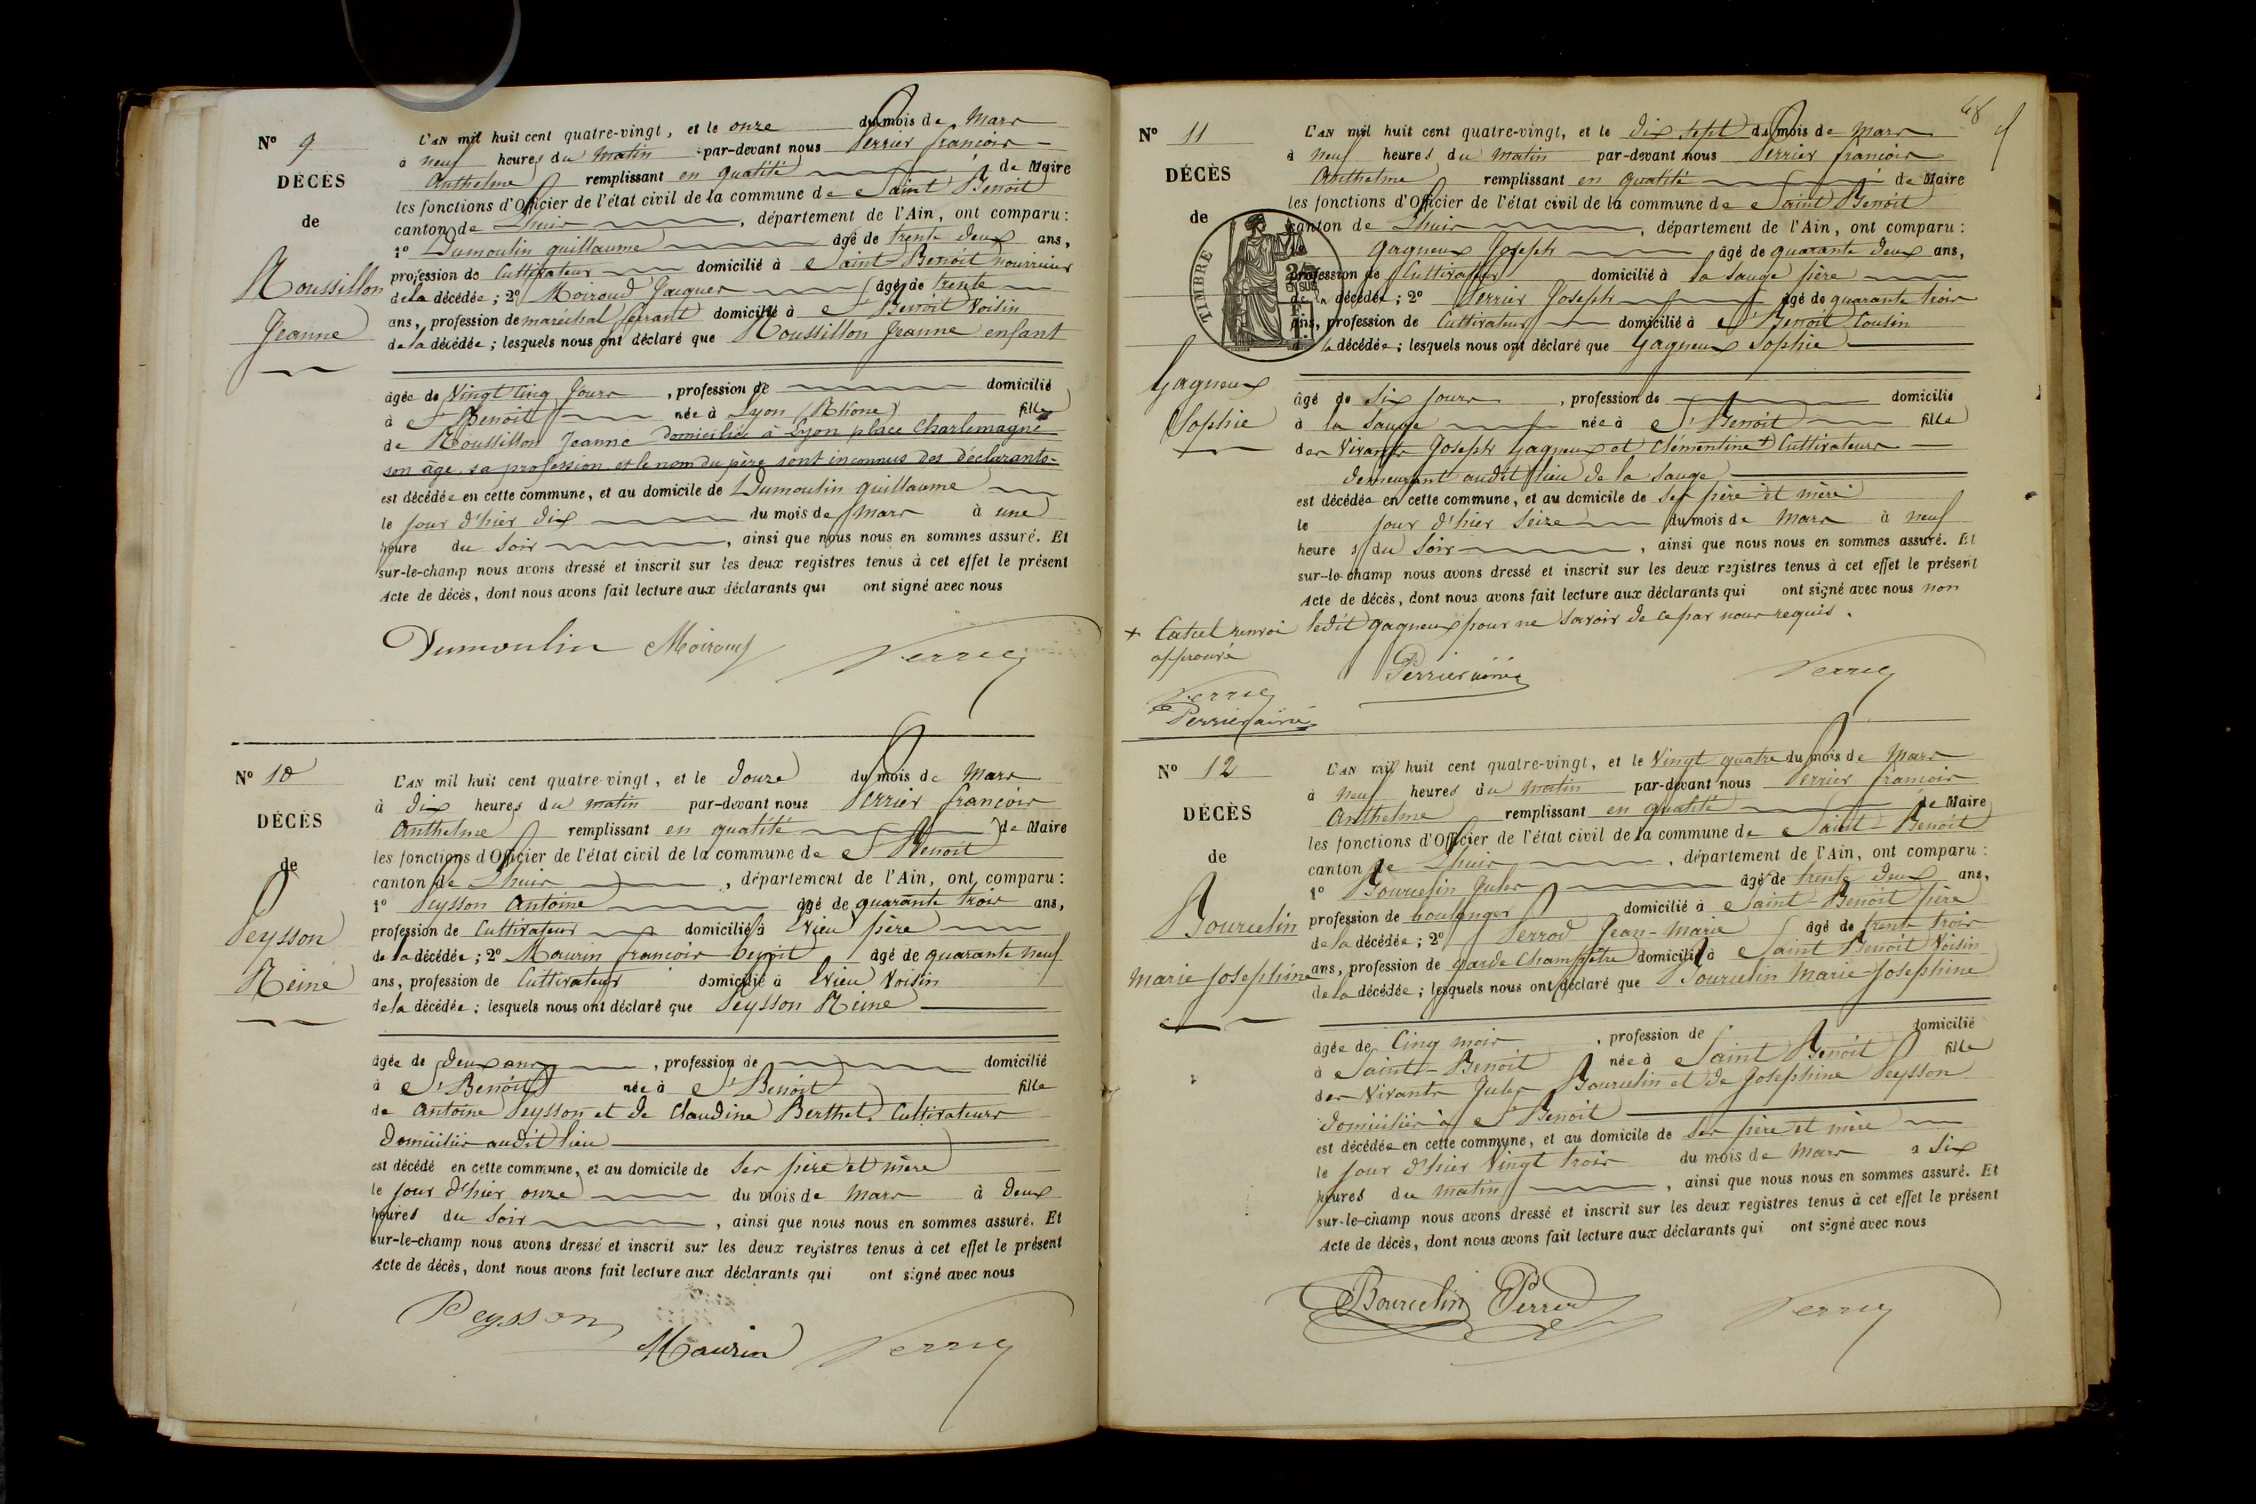 N° 9
DÉCÈS
de
Roussillon
Jeanne
L'an mil huit cent quatre-vingt, et le onze du mois de Mars
à neuf heures du matin par-devant nous Perrier françois
Anthelme remplissant en qualité de Maire
les fonctions d'Officier de l'état civil de la commune de Saint Benoit
canton de Lhuis, département de l'Ain, ont comparu :
1° Dumoulin guillaume âgé de trente deux ans,
profession de Cultivateur domicilié à Saint-Benoit nourricier
de la décédée ; 2° Moiroud Jacques âgé de trente
ans, profession de maréchal ferrant domicilié à St Benoit Voisin
de la décédée ; lesquels nous ont déclaré que Roussillon Jeanne enfant
âgée de Vingt Cinq Jours, profession de domicilié
à St Benoit née à Lyon (Rhone) fille
de Roussillon Jeanne domiciliée à Lyon place Charlemagne
son âge, sa profession et le nom du père sont inconnus des déclarants
est décédée en cette commune, et au domicile de Dumoulin guillaume
le jour d'hier dix du mois de Mars à une
heure du Soir, ainsi que nous nous en sommes assuré. Et
sur-le-champ nous avons dressé et inscrit sur les deux registres tenus à cet effet le présent
Acte de décès, dont nous avons fait lecture aux déclarants qui ont signé avec nous
Dumoulin Moiroud Perrier
N° 10
DÉCÈS
de
Peysson
Reine
L'an mil huit cent quatre-vingt, et le douze du mois de Mars
à dix heures du matin par-devant nous Perrier françois
Anthelme remplissant en qualité de Maire
les fonctions d'Officier de l'état civil de la commune de St Benoit
canton de Lhuis, département de l'Ain, ont comparu :
1° Peysson Antoine âgé de quarante trois ans,
profession de Cultivateur domicilié à Evieu père
de la décédée ; 2° Maurin françois benoit âgé de quarante neuf
ans, profession de Cultivateur domicilié à Evieu Voisin
de la décédée ; lesquels nous ont déclaré que Peysson Reine
âgée de deux ans, profession de domicilié
à St Benoit née à St Benoit fille
de Antoine Peysson et de Claudine Berthet Cultivateurs
domiciliés audit lieu
est décédé en cette commune, et au domicile de Ses père et mère
le jour d'hier onze du mois de Mars à deux
heures du Soir, ainsi que nous nous en sommes assuré. Et
sur-le-champ nous avons dressé et inscrit sur les deux registres tenus à cet effet le présent
Acte de décès, dont nous avons fait lecture aux déclarants qui ont signé avec nous
Peysson Maurin Perrier
48
N° 11
DÉCÈS
de
Gagneux
Sophie
TIMBRE
L'an mil huit cent quatre-vingt, et le dix sept du mois de Mars
à neuf heures du matin par-devant nous Perrier françois
Anthelme remplissant en qualité de Maire
les fonctions d'Officier de l'état civil de la commune de Saint Benoit
canton de Lhuis, département de l'Ain, ont comparu :
Gagneux Joseph âgé de quarante deux ans,
profession de Cultivateur domicilié à la Sauge père
de la décédée ; 2° Perrier Joseph âgé de quarante trois
ans, profession de Cultivateur domicilié à St Benoit Cousin
de la décédée ; lesquels nous ont déclaré que Gagneux Sophie
âgé de Six jours, profession de domicilié
à la Sauge née à St Benoit fille
des Vivants Joseph Gagneux et Clémentine + Cultivateurs
demeurant audit lieu de la Sauge
est décédée en cette commune, et au domicile de Ses père et mère
le jour d'hier Seize du mois de Mars à neuf
heures du Soir, ainsi que nous nous en sommes assuré. Et
sur-le-champ nous avons dressé et inscrit sur les deux registres tenus à cet effet le présent
Acte de décès, dont nous avons fait lecture aux déclarants qui ont signé avec nous non
ledit gagneux pour ne savoir de ce par nous requis.
+ Catul renvoi
approuvé
Perrier
Perrier ainé
Perrier ainé Perrier
N° 12
DÉCÈS
de
Bourcelin
Marie Josephine
L'an mil huit cent quatre-vingt, et le Vingt quatre du mois de Mars
à neuf heures du matin par-devant nous Perrier françois
Anthelme remplissant en qualité de Maire
les fonctions d'Officier de l'état civil de la commune de Saint-Benoit
canton de Lhuis, département de l'Ain, ont comparu :
1° Bourcelin Jules âgé de trente deux ans,
profession de boulanger domicilié à Saint-Benoit père
de la décédée ; 2° Perrod Jean-Marie âgé de trente trois
ans, profession de garde Champêtre domicilié à Saint Benoit Voisin
de la décédée ; lesquels nous ont déclaré que Bourcelin Marie Josephine
âgée de Cinq mois, profession de domicilié
à Saint-Benoit née à Saint Benoit fille
des Vivants Jules Bourcelin et de Josephine Peysson
domiciliés à St Benoit
est décédée en cette commune, et au domicile de Ses père et mère
le jour d'hier Vingt trois du mois de Mars à Six
heures du matin, ainsi que nous nous en sommes assuré. Et
sur-le-champ nous avons dressé et inscrit sur les deux registres tenus à cet effet le présent
Acte de décès, dont nous avons fait lecture aux déclarants qui ont signé avec nous
Bourcelin Perrod Perrier